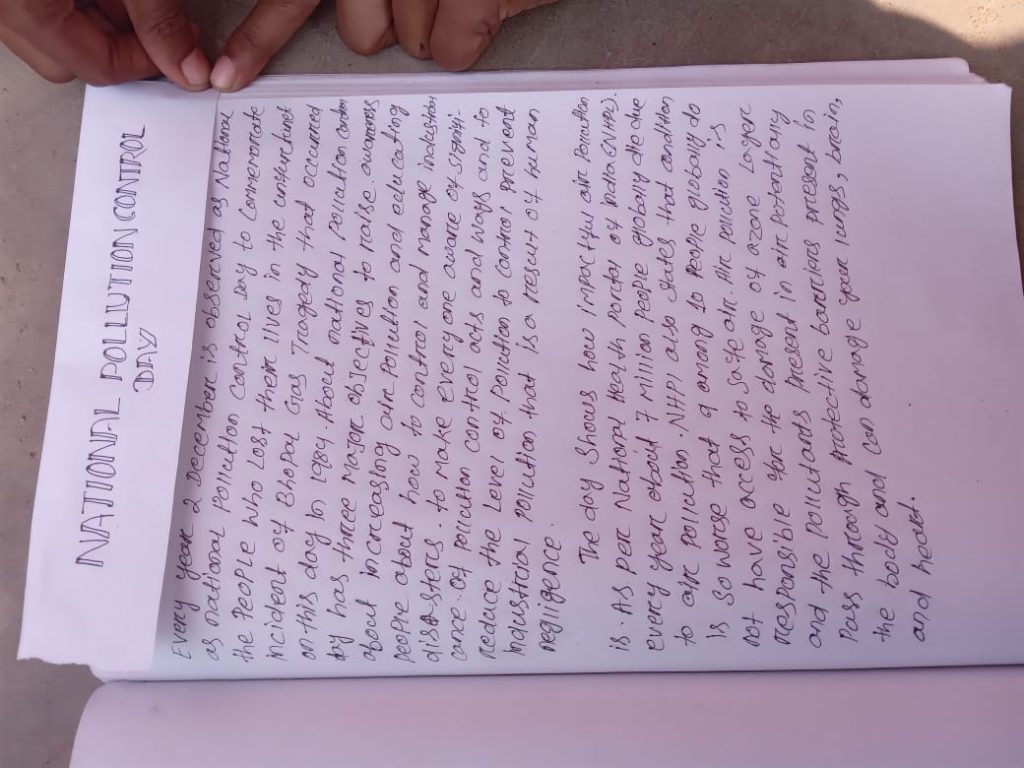 NATIONAL POLLUTION CONTROL
DAY
Every year 2 december is observed as National
as national pollution control day to Commemorate
the People who Lost their lives in the unfortunet
incident of Bhopal Gas Tragedy that occurred
on this day in 1984 About national pollution control
by has three Major objectives to raise awarness
about increasing air Pollution and educating
people about how to control and manage industrial
disa-sters. to make everyone aware of signifi-
cance of pollution control acts and ways and to
reduce the Level of Pollution to control, prevent
industrial pollution that is a result of human
negligence.
The day Shows how impactful air Pollution
is. As per National Health Portal of India (NHPI).
every year about 7 Million people globally die due
to air Pollution. NHPI also states that condition
is so worse that 9 among 10 people globally do
not have access to Safe air. Air pollution is
responsible for the damage of ozone Layer
and the Pollutants Present in air Potentially
Pass through Protective barriers present in
the body and can damage your lungs, brain,
and heart.